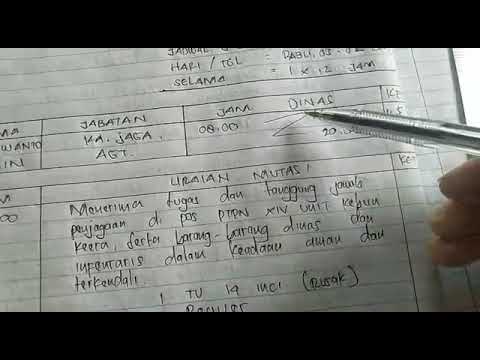 JADWAL
HARI / TGL = RABU, 05
SELAMA = 1 X 12 JAM
MA JABATAN JAM DINAS KE
WANTO KA. JAGA. 08.00
IN AGT. 20.
URAIAN MUTASI KE
00 Menerima tugas dan tanggung jawab
penjagaan di pos PTPN XIV UNIT KEBUN
keera, serta barang-barang dinas dan
inventaris dalam keadaan aman dan
terkendali.
1 TV 14 INCI (Rusak)